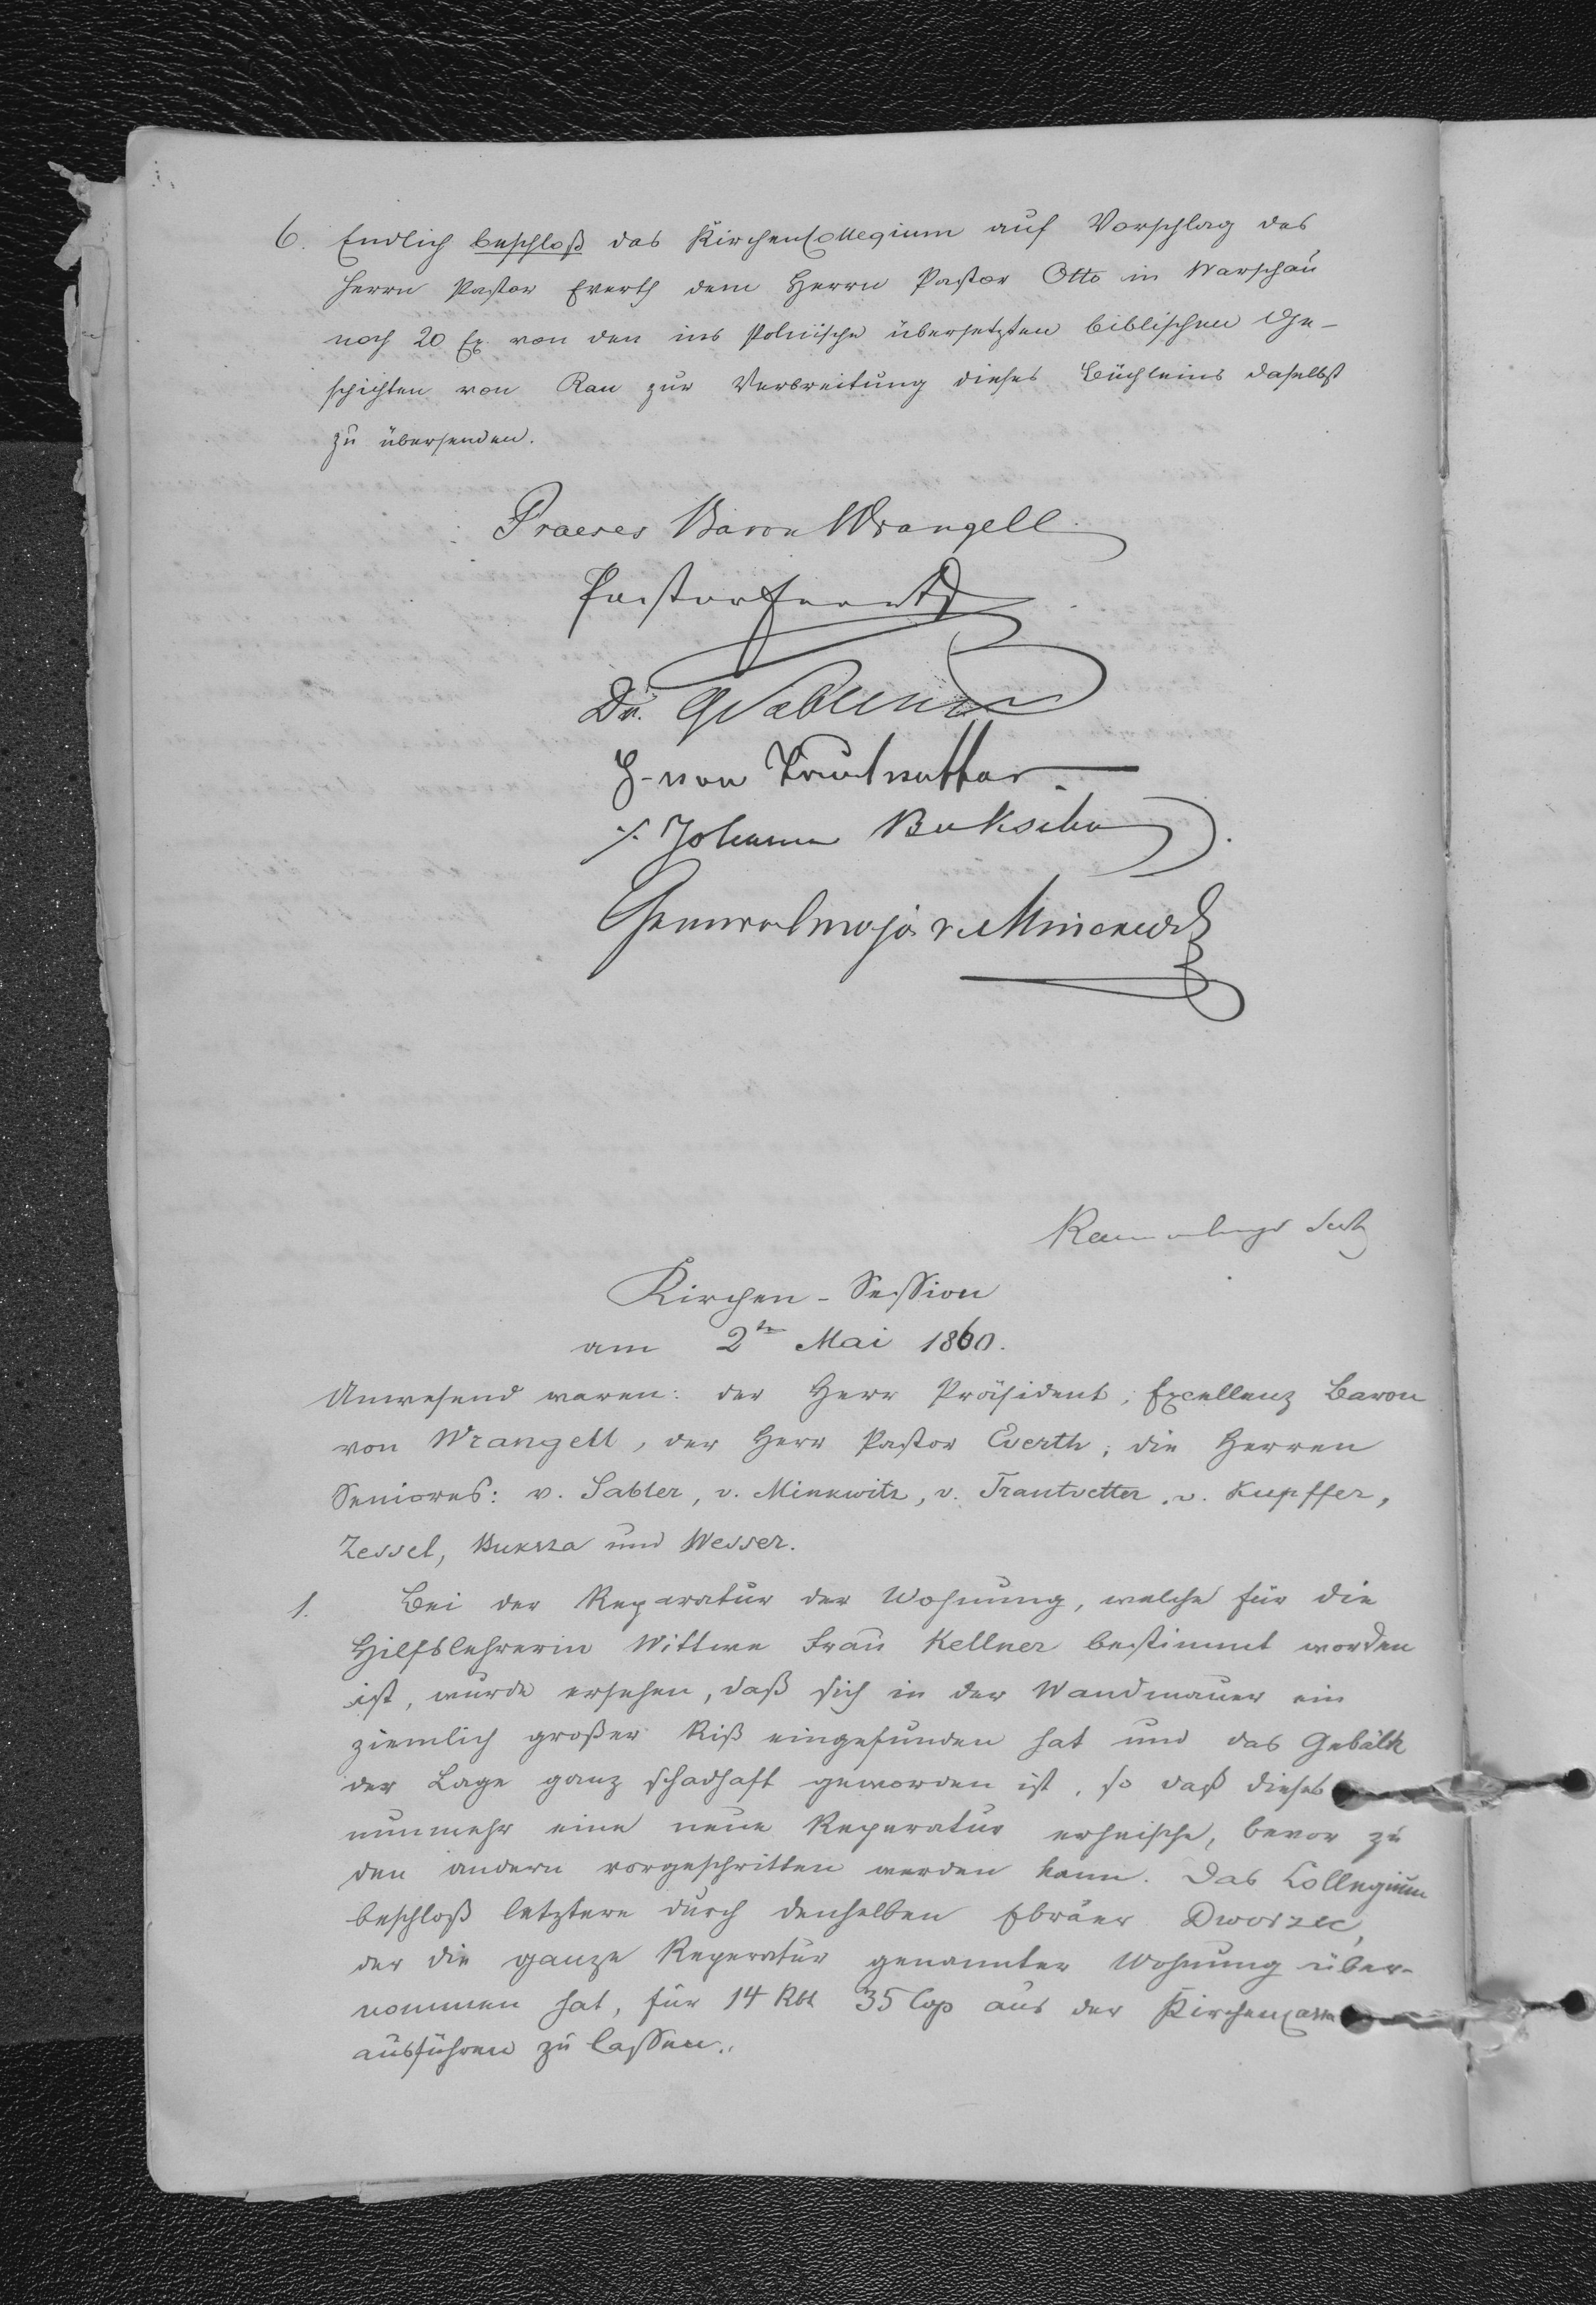 6. Endlich beschloß das KirchenCollegium auf Vorschlag des
Herrn Pastor Everth dem Herrn Pastor Otto in Warschau
noch 20 Ex. von den ins Polnische übersetzten biblischen Ge-
schichten von Rau zur Verbreitung dieses Büchleins daselbst
zu übersenden.
Praeses Baron Wrangell
Pastor Everth
Dr. G Sabler
von Trautvetter.
Johann Bukscha
Generalmajor v. Minckwitz
Kirchen-Session
am 2ten Mai 1860.
Anwesend waren: der Herr Präsident, Excellenz Baron
von Wrangell, der Herr Pastor Everth, die Herren
Seniores: v. Sabler, v. Minkwitz, v. Trautvetter, v. Kupffer,
Zessel, Buksza und Messer.
1. Bei der Reparatur der Wohnung, welche für die
Hilfslehrerin Wittwe Frau Kellner bestimmt worden
ist, wurde ersehen, daß sich in der Wandmauer ein
ziemlich großer Riß eingefunden hat und das Gebälk
der Lage ganz schadhaft geworden ist, so daß dieses
nunmehr eine neue Reparatur erheische, bevor zu
den andern vorgeschritten werden kann. Das Collegium
beschloß letztere durch denselben Ebräer Dworzec,
der die ganze Reperatur genannter Wohnung über-
nommen hat, für 14 Rbl 35 Cop aus der Kirchencasse
ausführen zu lassen.